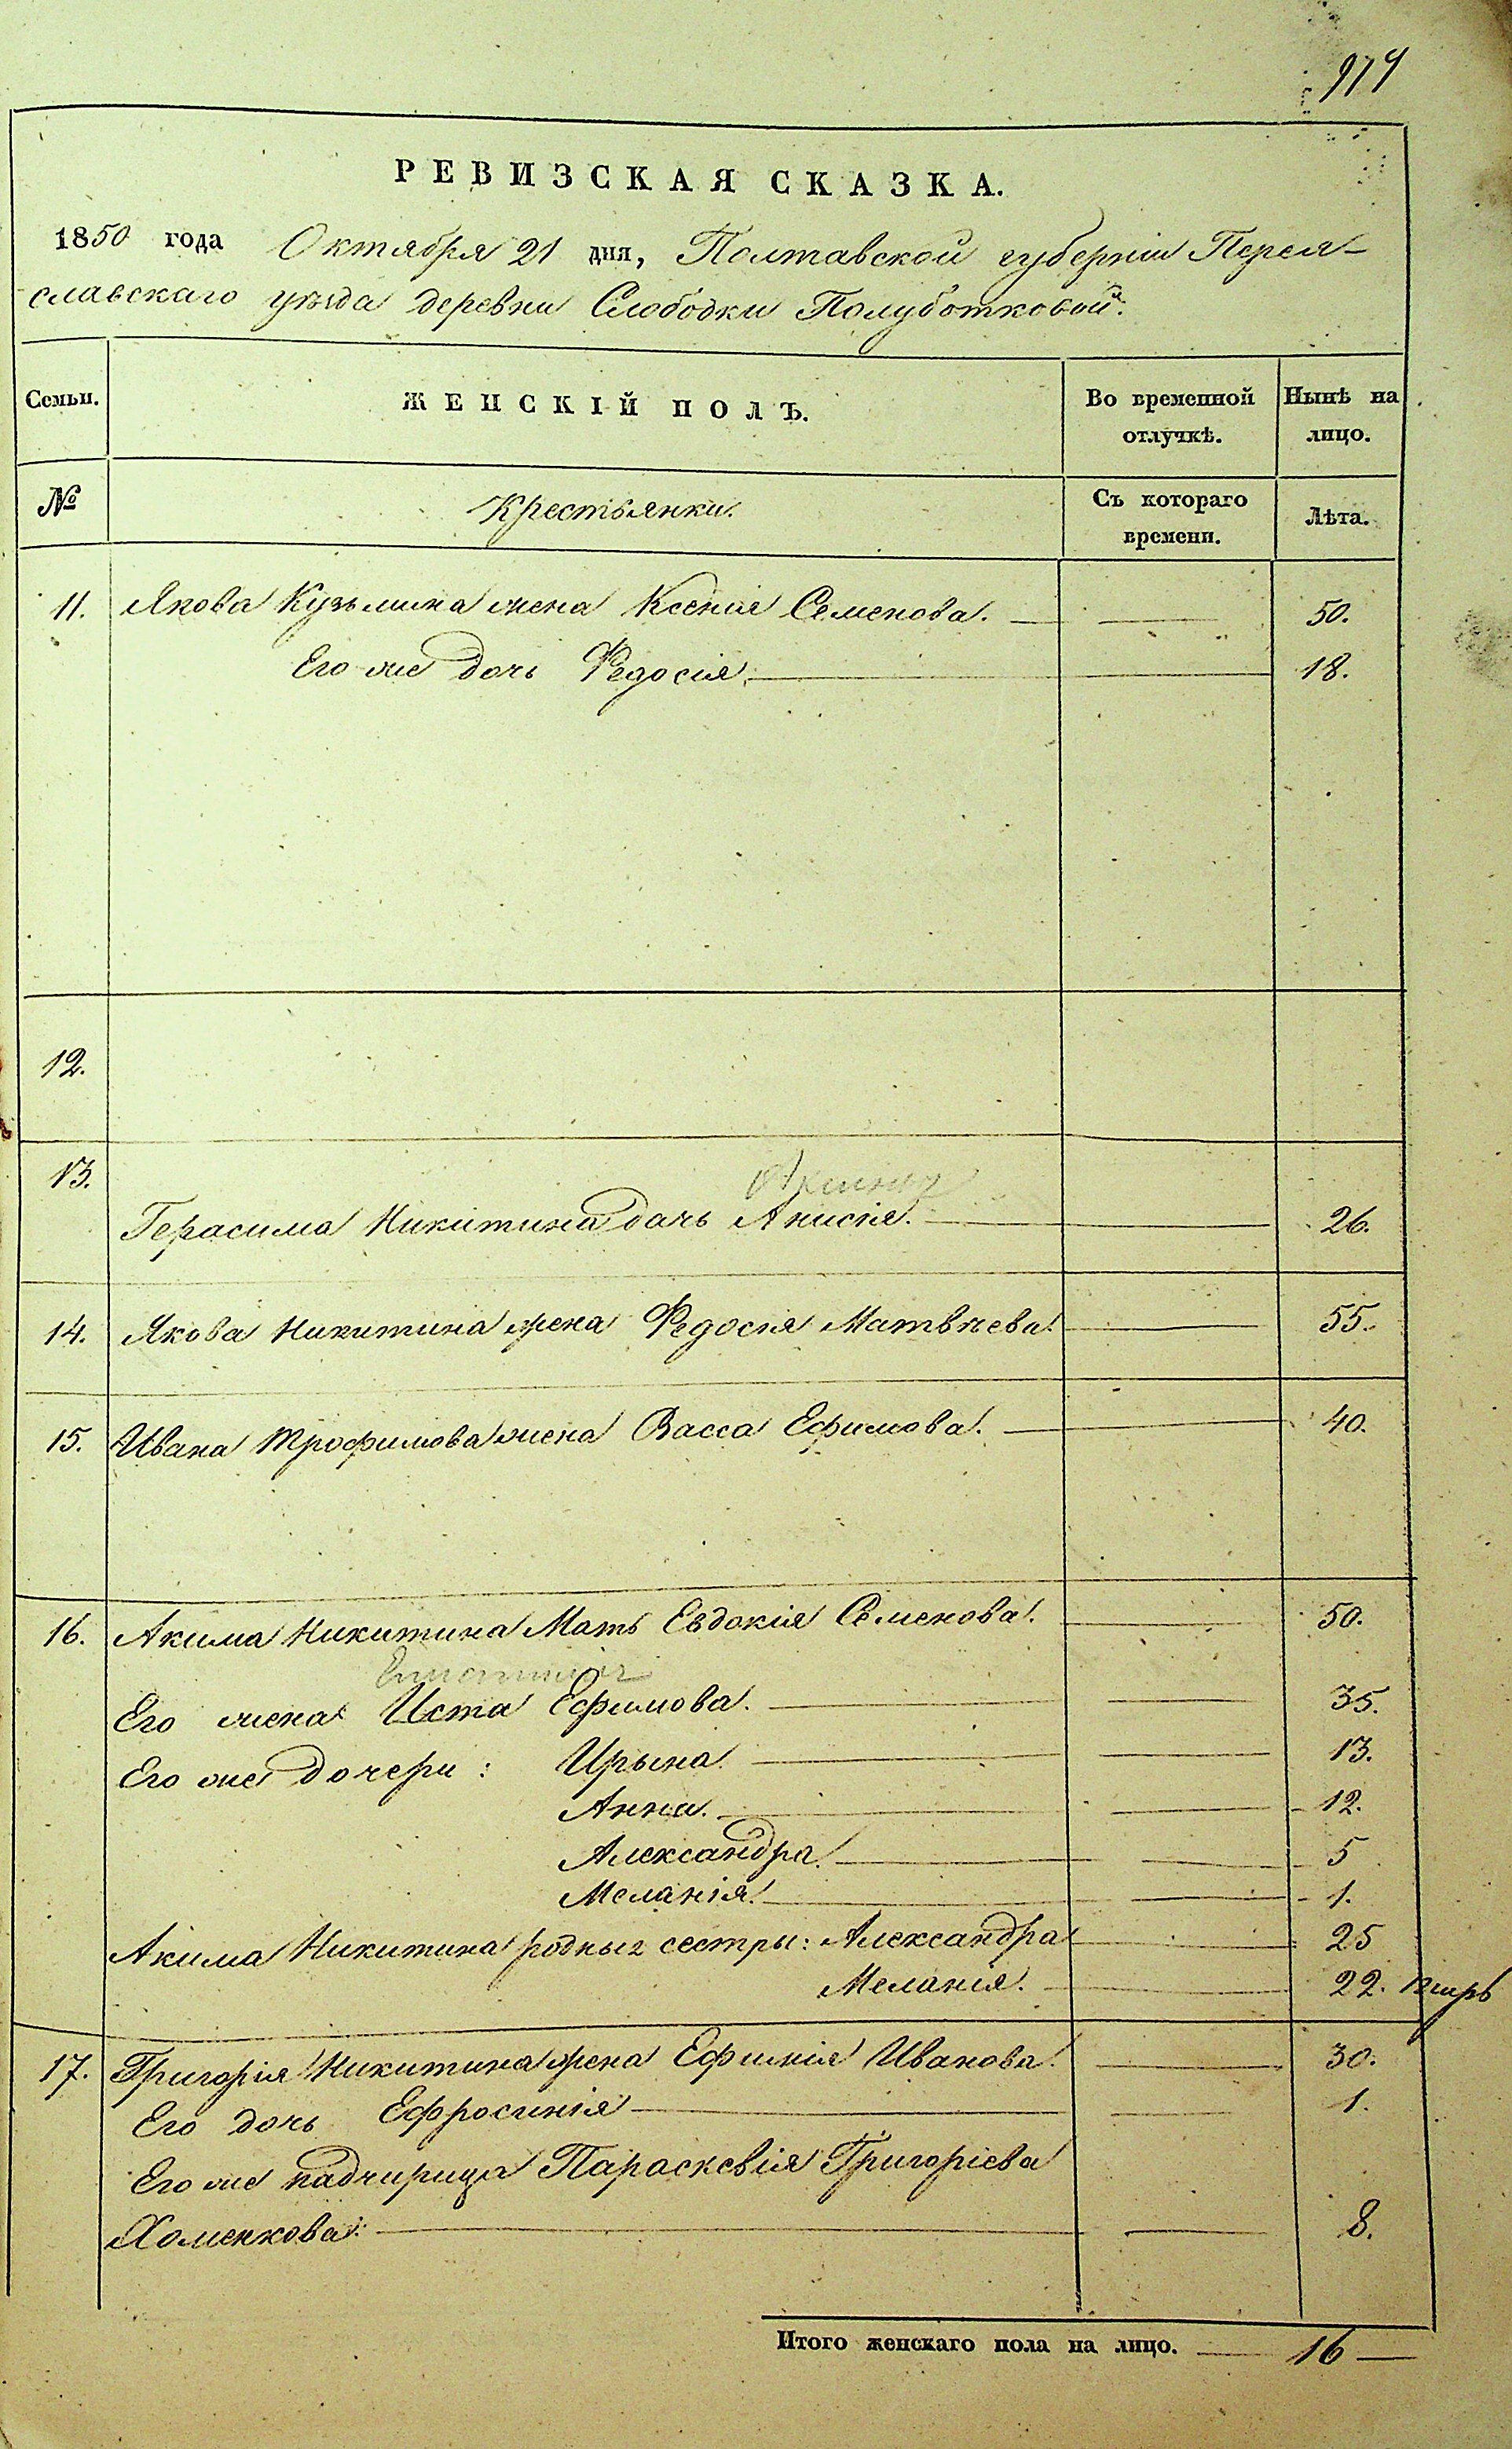 974
РЕВИЗСКАЯ СКАЗКА.
1850 года Октября 21 дня, Полтавской губерніи Перея-
славскаго уѣзда деревни Слободки Полуботковой.
Семьи. ЖЕНСКІЙ ПОЛЪ. Во временной отлучкѣ. Нынѣ на лицо.
№ Крестьянки. Съ котораго времени. Лѣта.
11. Якова Кузьмина жена Ксенія Семенова. 50.
Его же дочь Федосія. 18.
12.
13.
Герасима Никитина дочь Анисія. 26.
14. Якова Никитина жена Федосія Матвѣева. 55.
15. Ивана Трофимова жена Васса Ефимова. 40.
16. Акима Никитина Мать Евдокія Семенова. 50.
Его жена Иста Ефимова. 35.
Его же дочери: Ирына. 13.
Анна. 12.
Александра. 5
Меланія. 1.
Акима Никитина родныя сестры: Александра 25
Меланія. 22.
17. Григорія Никитина жена Ефимія Иванова. 30.
Его дочь Ефросинія 1.
Его же падчирица Параскевія Григоріева
Хоменкова. 8.
Итого женскаго пола на лицо. 16